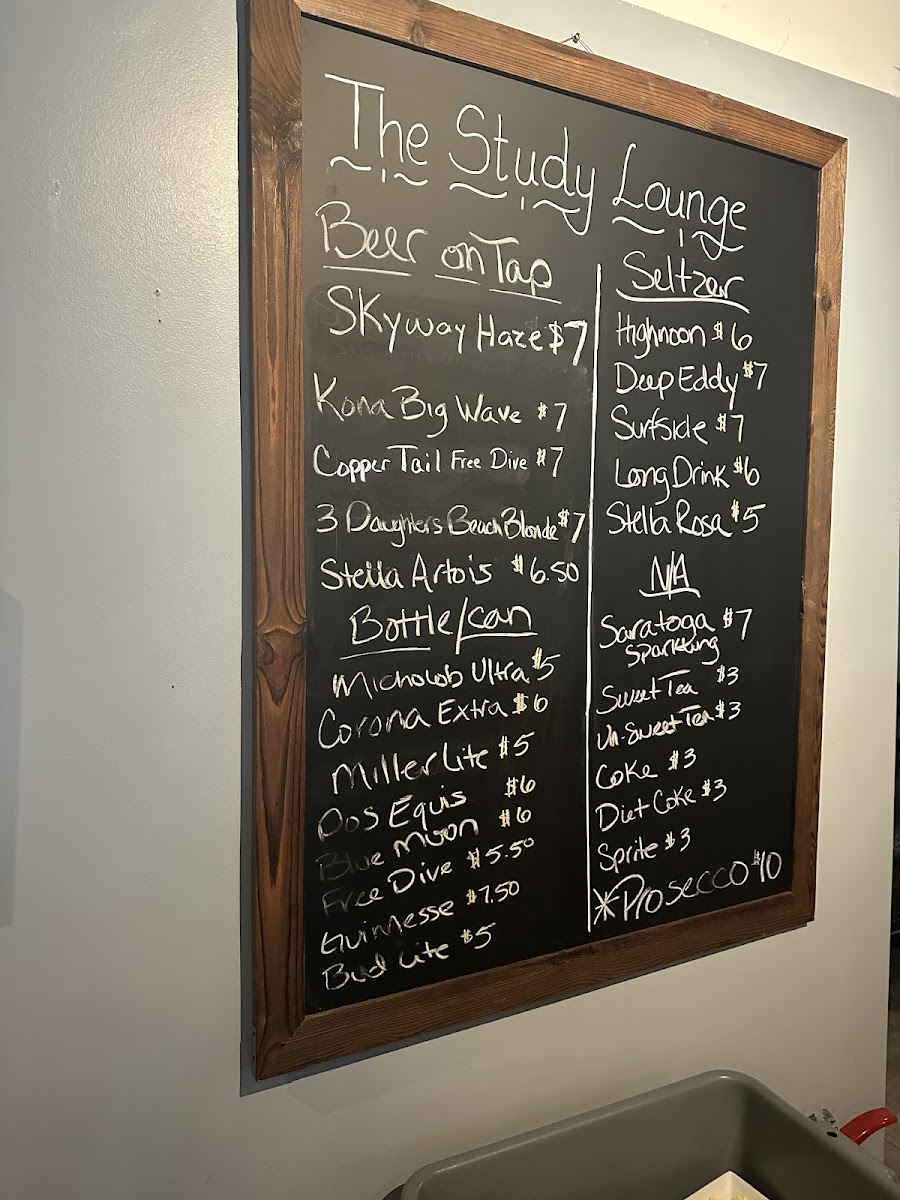 The Study Lounge
Beer on Tap
SKyway Haze $7
Kona Big Wave $7
Copper Tail Free Dive $7
3 Daughters Beach Blonde $7
Stella Artois $6.50
Bottle/can
Micholob Ultra $5
Corona Extra $6
Miller Lite $5
Dos Equis $6
Blue Moon $6
Free Dive $5.50
Guinnesse $7.50
Bud Lite $5
Seltzer
Highnoon $6
Deep Eddy $7
Surfside $7
Long Drink $6
Stella Rosa $5
N/A
Saratoga $7
Sparkling
Sweet Tea $3
Un-Sweet Tea $3
Coke $3
Diet Coke $3
Sprite $3
*Prosecco $10